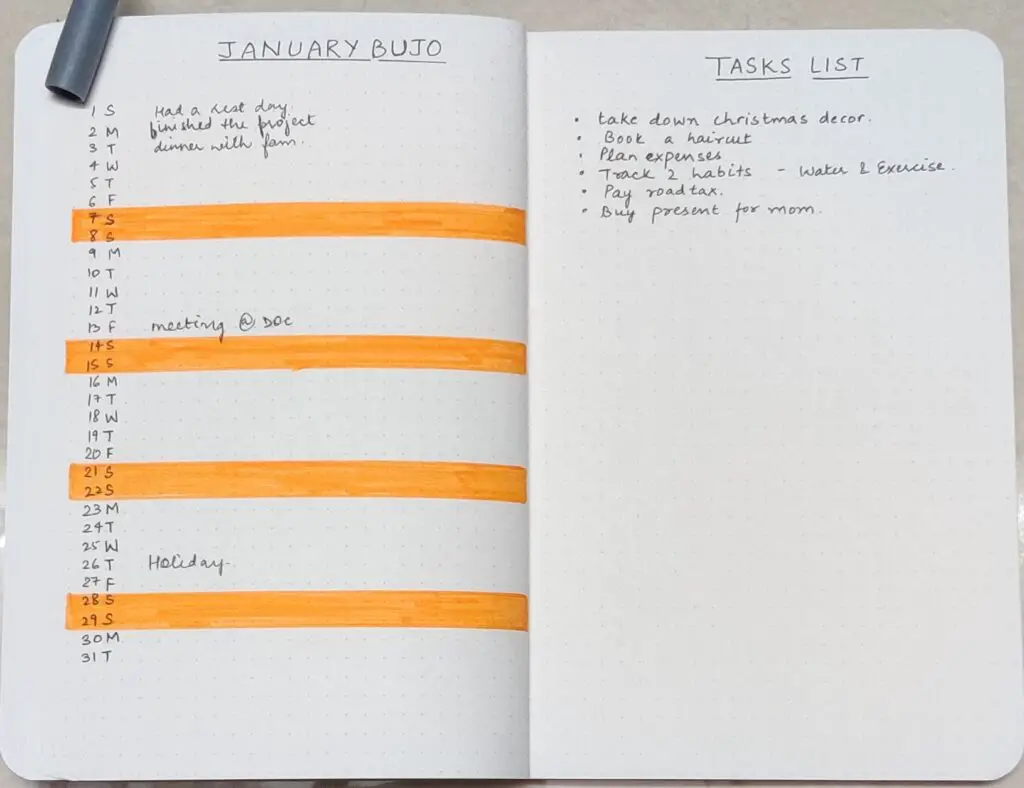 JANUARY BUJO
1 S Had a rest day.
2 M finished the project
3 T dinner with fam.
4 W
5 T
6 F
7 S
8 S
9 M
10 T
11 W
12 T
13 F meeting @ DOC
14 S
15 S
16 M
17 T
18 W
19 T
20 F
21 S
22 S
23 M
24 T
25 W
26 T Holiday.
27 F
28 S
29 S
30 M
31 T
TASKS LIST
• take down christmas decor.
• Book a haircut
• Plan expenses
• Track 2 habits - Water & Exercise.
• Pay roadtax.
• Buy present for mom.